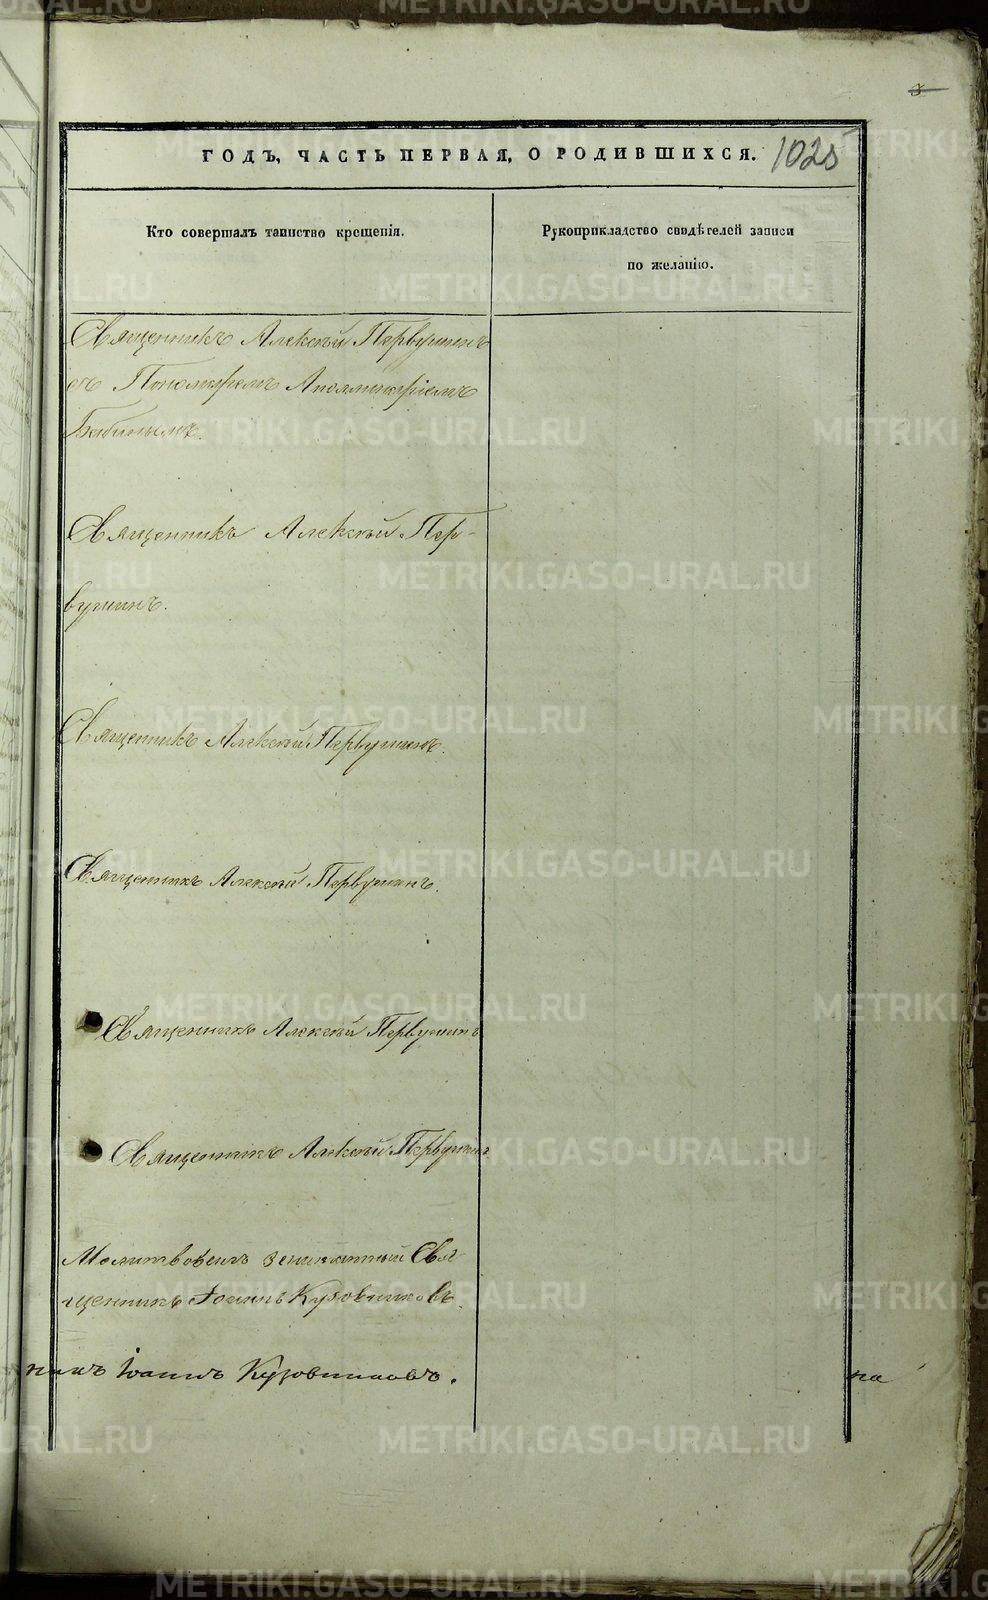 3
ГОДЪ, ЧАСТЬ ПЕРВАЯ, О РОДИВШИХСЯ. 1025
Кто совершалъ таинство крещенія.
Рукоприкладство свидѣтелей записи
по желанію.
Священникъ Алексѣй Первушинъ
съ Пономаремъ Аполлинаріемъ
Бабинымъ.
Священникъ Алексѣй Пер-
вушинъ.
Священникъ Алексѣй Первушинъ.
Священникъ Алексѣй Первушинъ.
Священникъ Алексѣй Первушинъ
Священникъ Алексѣй Первушинъ
Молитвовалъ Свя-
щенникъ Іоаннъ Кузовниковъ.
никъ Іоаннъ Кузовниковъ. на
METRIKI.GASO-URAL.RU